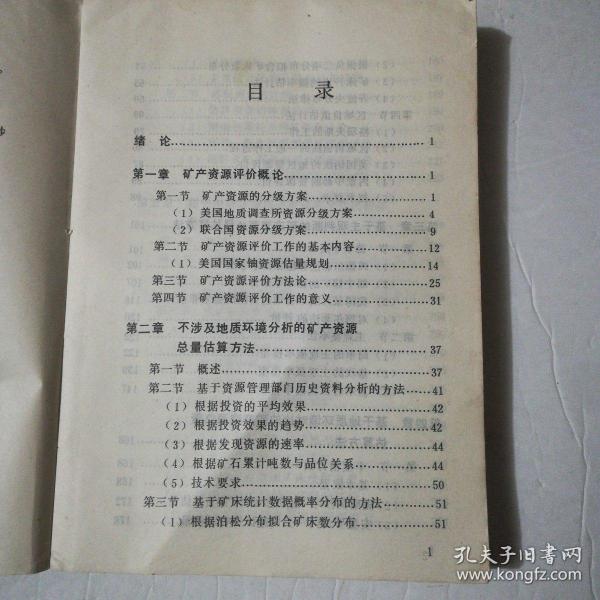 目 录
绪 论……………………………………1
第一章 矿产资源评价概论……………………1
第一节 矿产资源的分级方案……………………1
（1）美国地质调查所资源分级方案……………4
（2）联合国资源分级方案……………………9
第二节 矿产资源评价工作的基本内容…………12
（1）美国国家铀资源估量规划………………14
第三节 矿产资源评价方法论……………………25
第四节 矿产资源评价工作的意义………………31
第二章 不涉及地质环境分析的矿产资源
总量估算方法……………………………37
第一节 概述……………………………………37
第二节 基于资源管理部门历史资料分析的方法…41
（1）根据投资的平均效果……………………42
（2）根据投资效果的趋势……………………42
（3）根据发现资源的速率……………………44
（4）根据矿石累计吨数与品位关系…………44
（5）技术要求………………………………50
第三节 基于矿床统计数据概率分布的方法……51
（1）根据泊松分布拟合矿床数分布…………51
1
孔夫子旧书网
www.kongfz.com